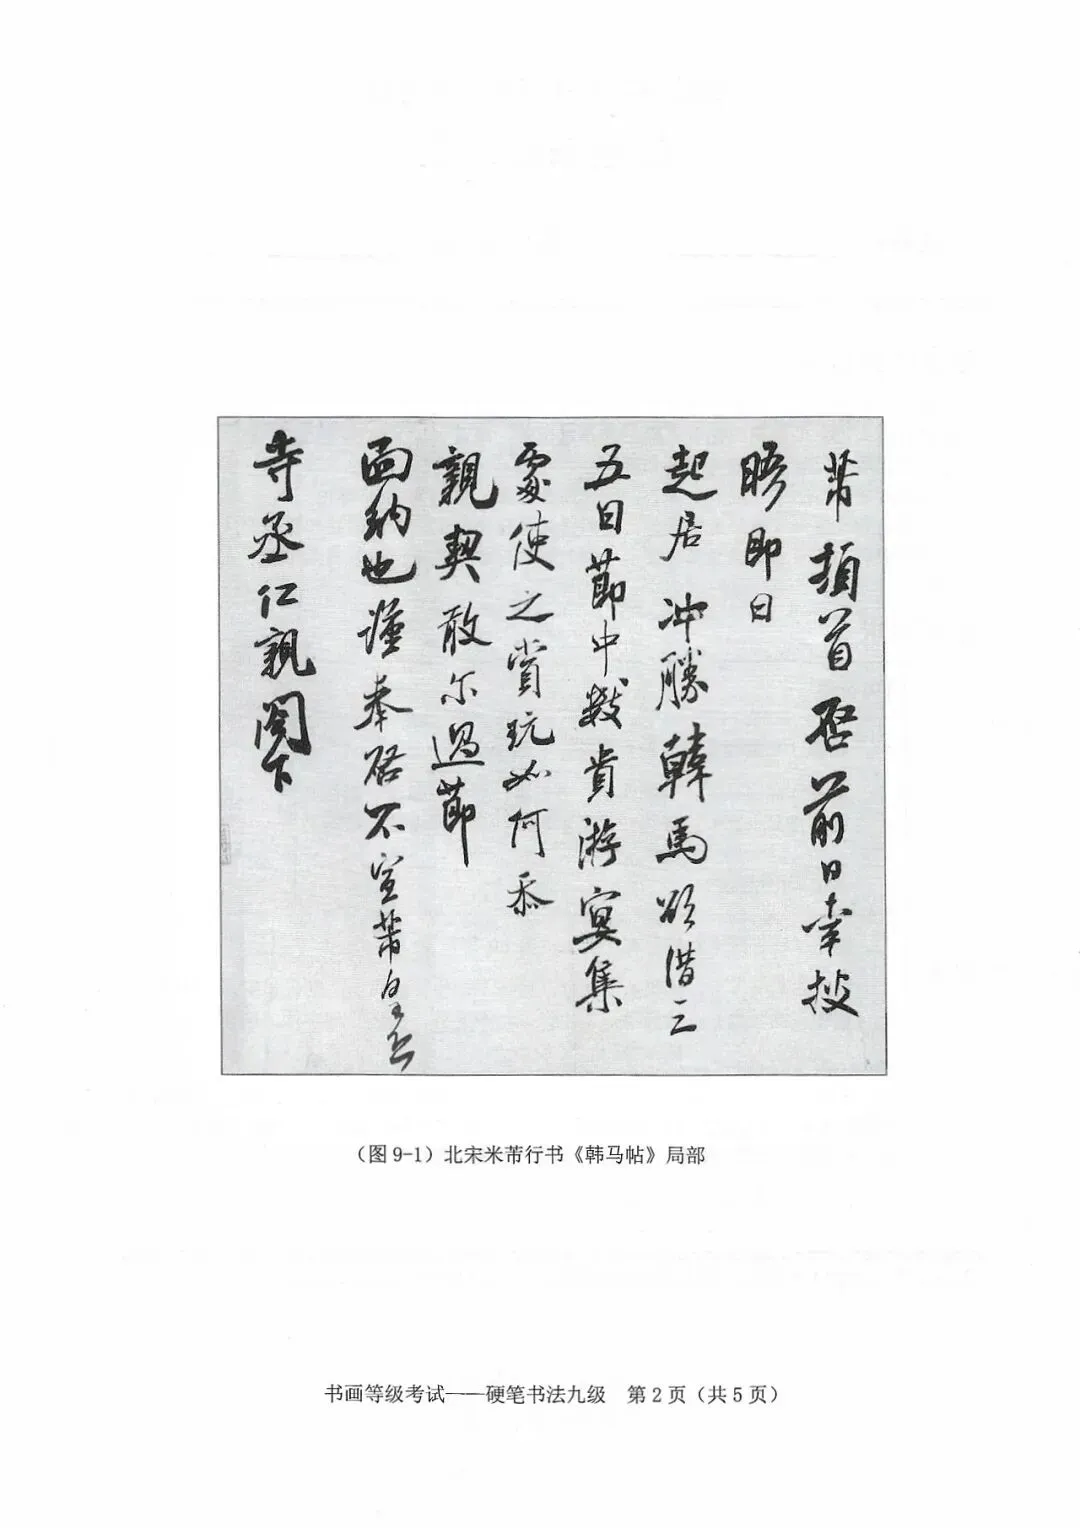 芾頓首啓前日幸披
晤即日
起居冲勝韓馬欲借三
五日節中數貴游宴集
處使之賞玩如何忝
親契敢尔過節
面納也謹奉啓不宣芾皇恐
寺丞仁親閤下
（图9-1）北宋米芾行书《韩马帖》局部
书画等级考试——硬笔书法九级 第2页（共5页）